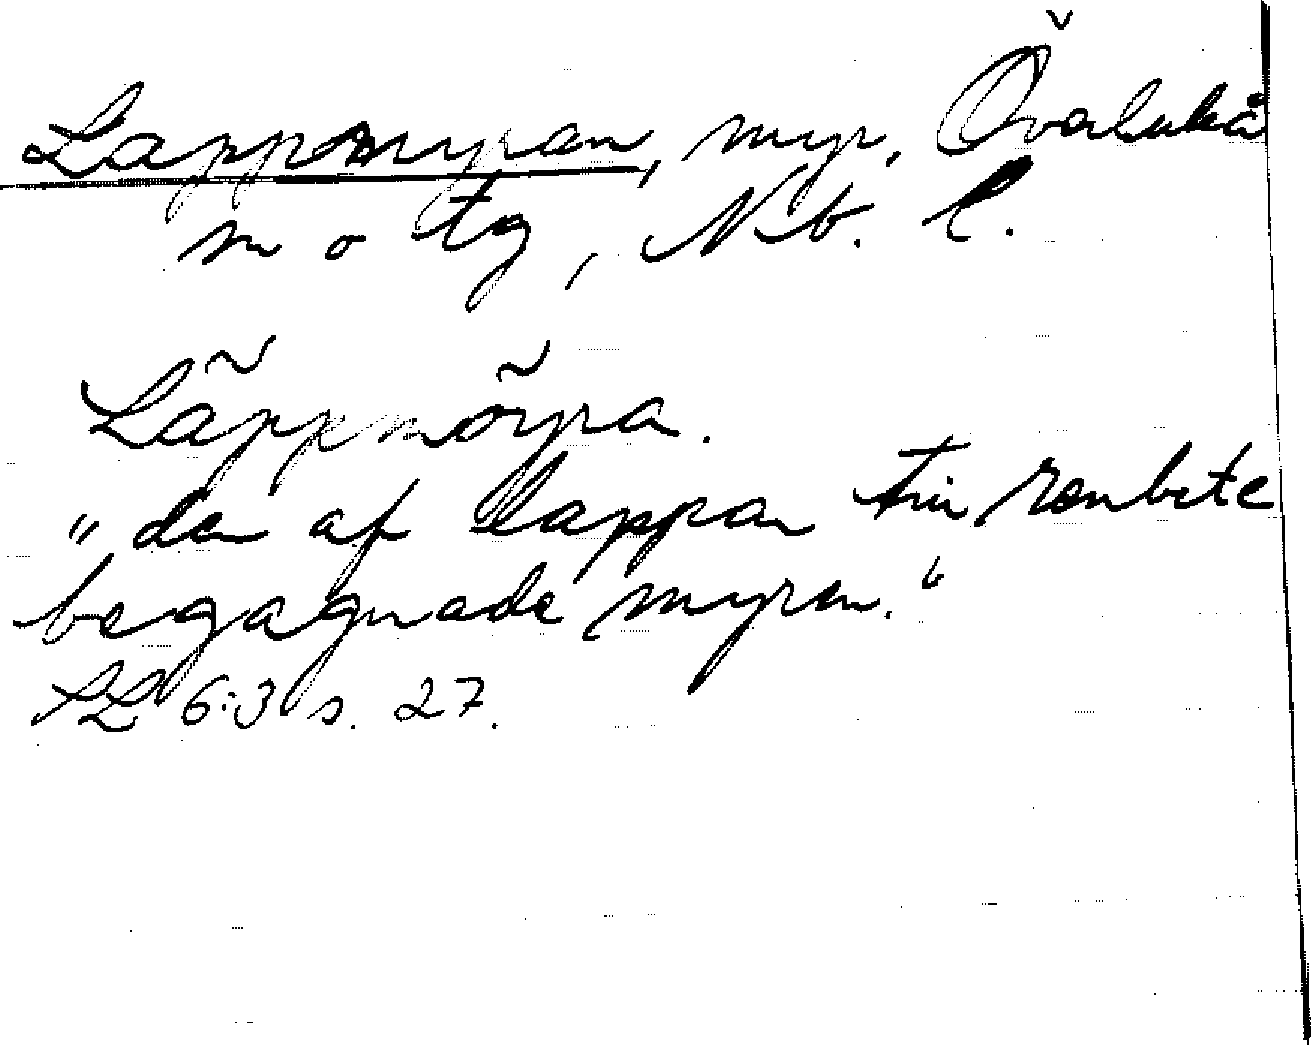 Lappmyran, myr, Överluleå
m o tg, Nb. l.
Lãppmõyra.
"den af lappar till renbete
begagnade myren."
SL 6:3 s. 27.